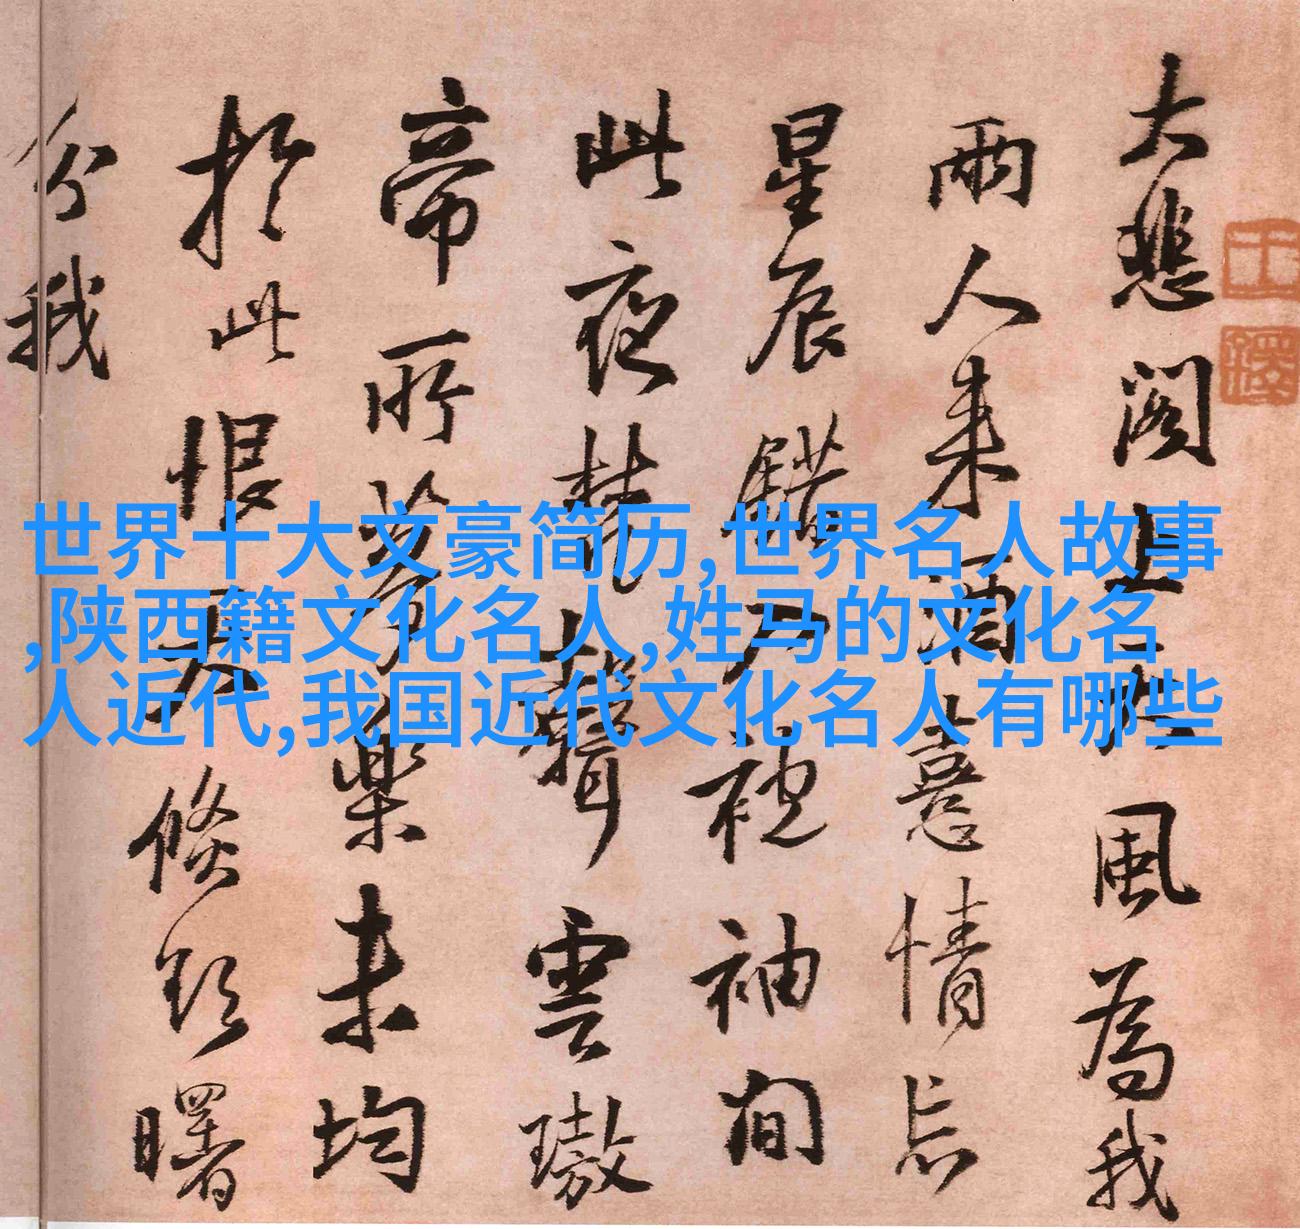 世界十大文豪简历,世界名人故事
,陕西籍文化名人,姓马的文化名
人近代,我国近代文化名人有哪些
大悲閣上風為我
兩人来酒情忘
星辰錯袖間
此夜聲雲璈
帝所樂未均
於此恨曙
分我